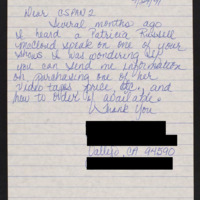 Dear CSPAN 2
Several months ago
I heard a Patricia Russell
McCloud speak on one of your
shows. I was wondering if
you can send me information
on purchasing one of her
video tapes, price etc, and
how to order if available.
Thank You
Vallejo, CA 94590